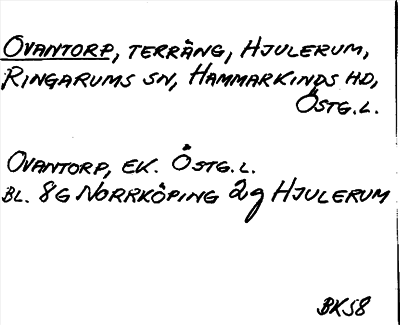 OVANTORP, TERRÄNG, HJULERUM,
RINGARUMS SN, HAMMARKINDS HD,
ÖSTG.L.
OVANTORP, EK. ÖSTG.L.
BL. 8G NORRKÖPING 2g HJULERUM
BKS8